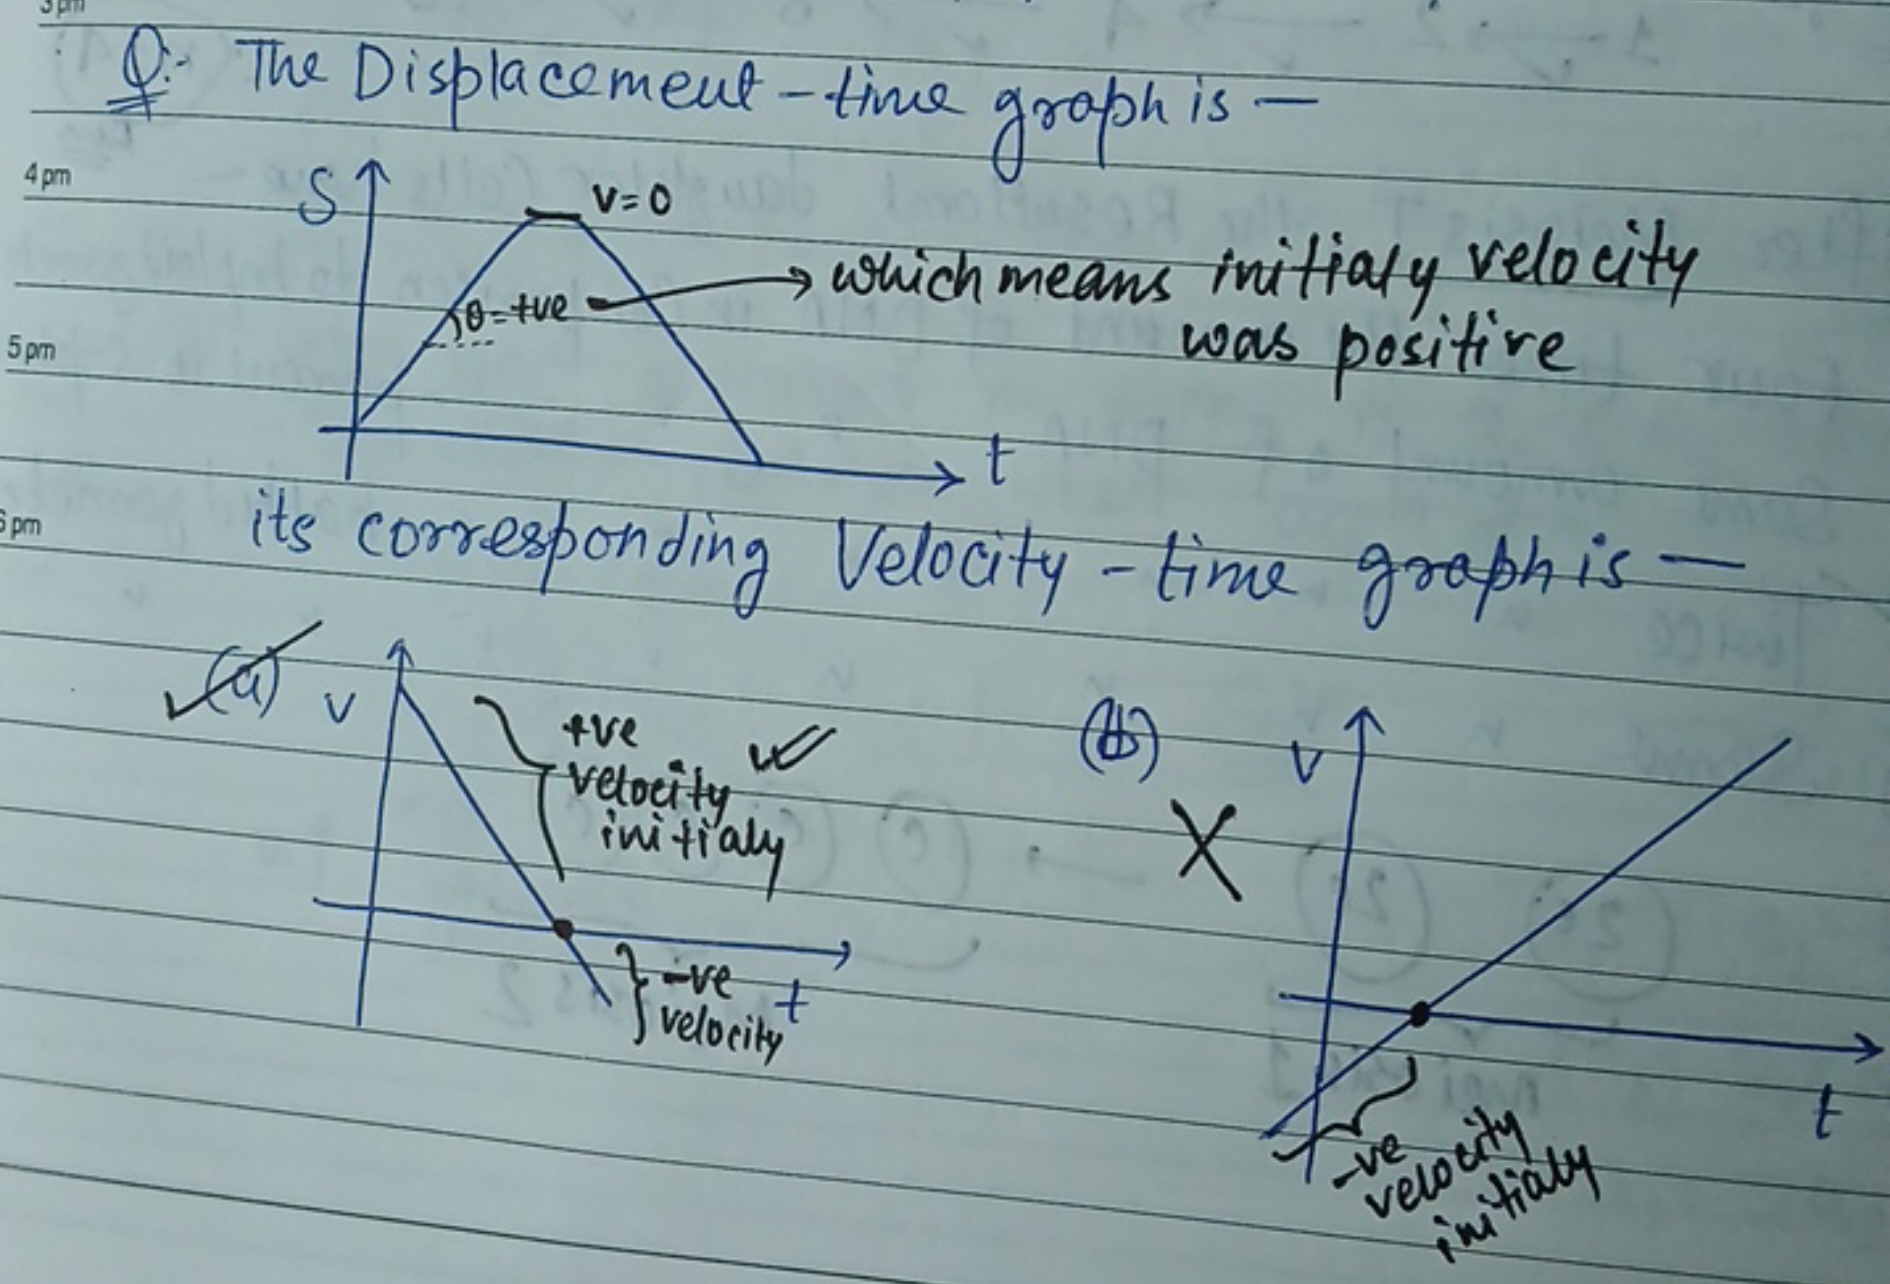 3 pm
Q:- The Displacement - time graph is —
4 pm
S
v = 0
θ = +ve → which means initialy velocity
was positive
5 pm
t
6 pm
its corresponding Velocity - time graph is —
(a) v
+ve
velocity
initialy
-ve
velocity
t
(b)
v
t
-ve
velocity
initialy